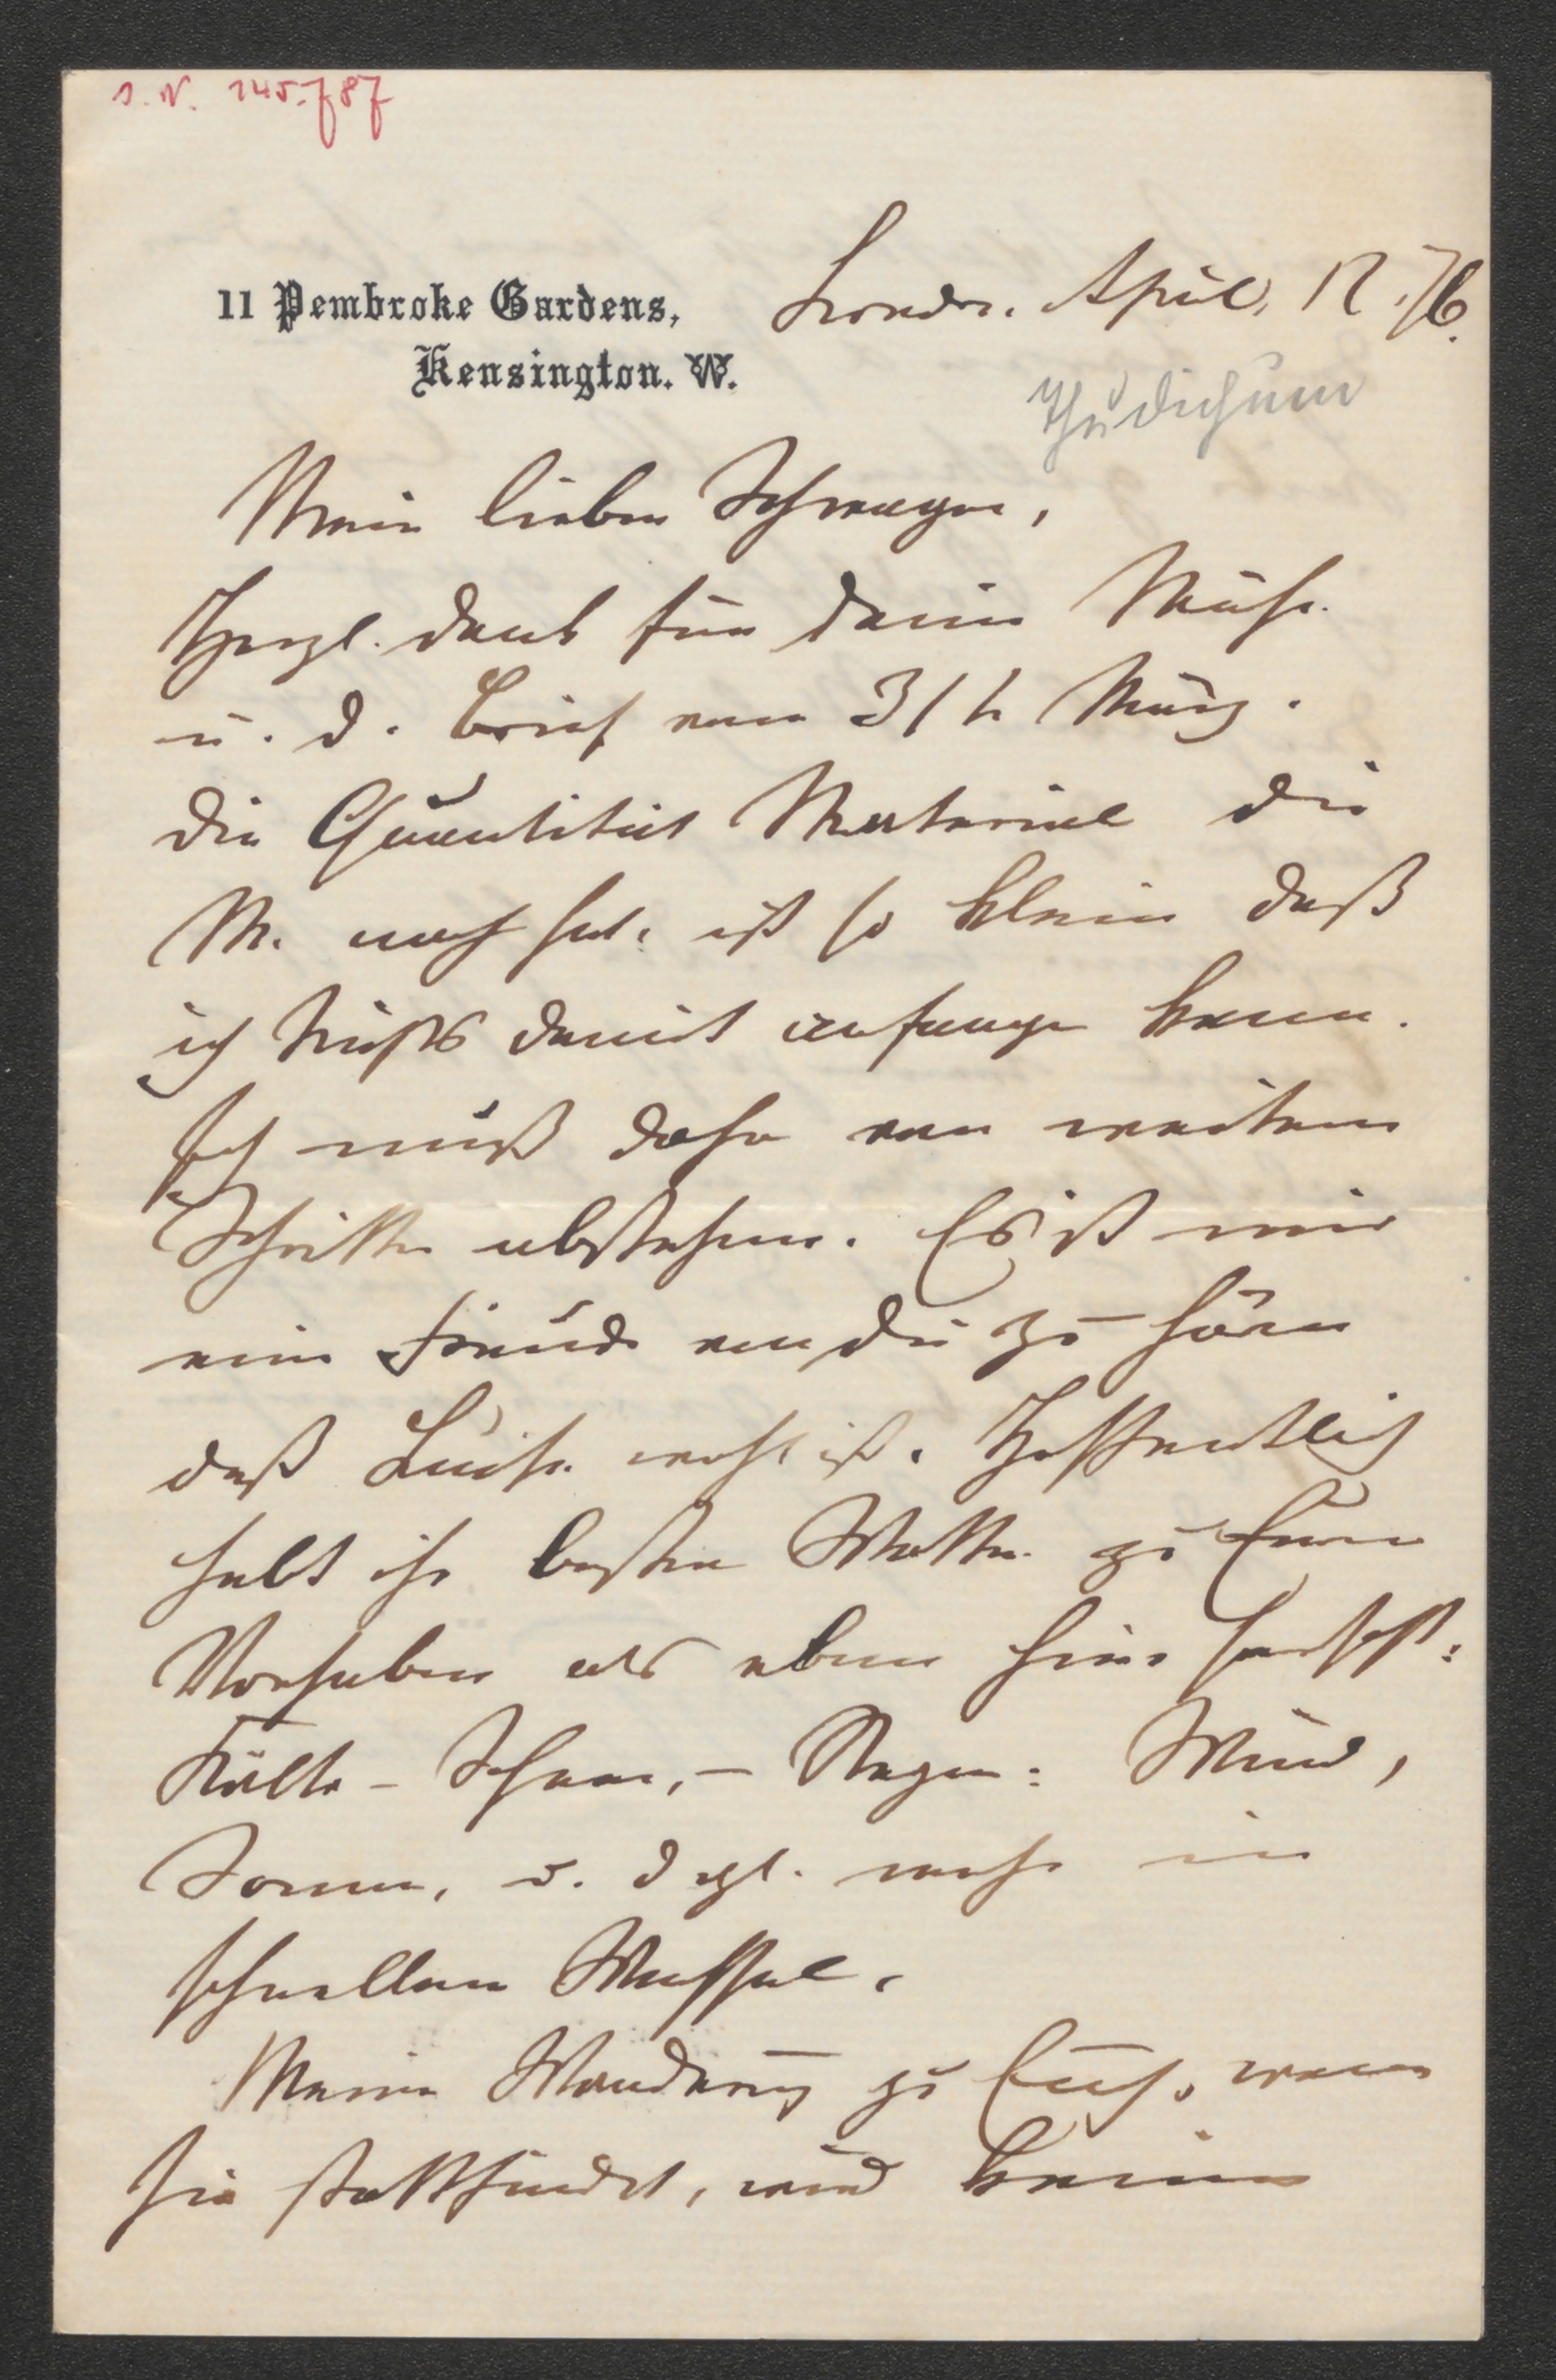 I. N. 145.787
11 Pembroke Gardens,
Kensington. W.
London. April, 12. 76.
Thudichum
Mein lieber Schwager,
Herzl. Dank für deine Mühe
u. d. Brief vom 31t März.
Die Quantität Material die
M. noch hat, ist so klein daß
ich Nichts damit anfangen kann.
Ich muß daher von weitern
Schritten abstehen. Es ist mir
eine Freude von dir zu hören
daß Luise wohl ist. Hoffentlich
habt ihr besser Wetter zu Eurem
Vorhaben als eben hier herrscht:
Kälte - Schnee, - Regen: Wind,
Sonne, u. dergl. mehr im
schnellem Wechsel.
Meine Wanderung zu Euch, wenn
sie stattfindet, wird keine